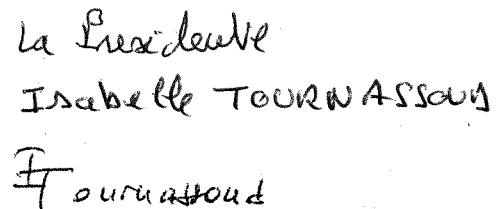 La Présidente
Isabelle TOURNASSOUD
ITournassoud